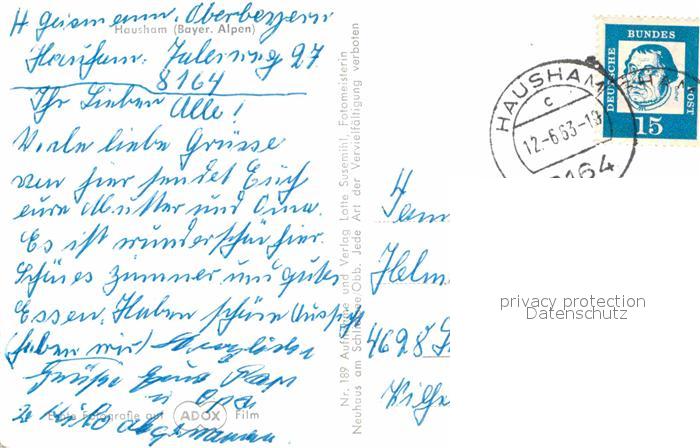 H Geismann. Oberbayern
Hausham (Bayer. Alpen)
Hausham. 27
8164
Ihr Lieben Alle!
Viele liebe Grüsse
von hier sendet Euch
eure Mutter und Oma.
Es ist wunderschön hier.
Schönes Zimmer und gutes
Essen. Haben schöne Aussicht
(haben wir) Herzliche
Grüße Euer Papa
u Opa
2 Kilo abgenommen
Echte Fotografie auf ADOX Film
Nr. 189 Aufnahme und Verlag Lotte Susemihl, Fotomeisterin
Neuhaus am Schliersee/Obb. Jede Art der Vervielfältigung verboten
Fam
Helm
4628
Wilhe
DEUTSCHE BUNDESPOST
15
HAUSHAM
c
12.-6.63-19
8164
privacy protection
Datenschutz